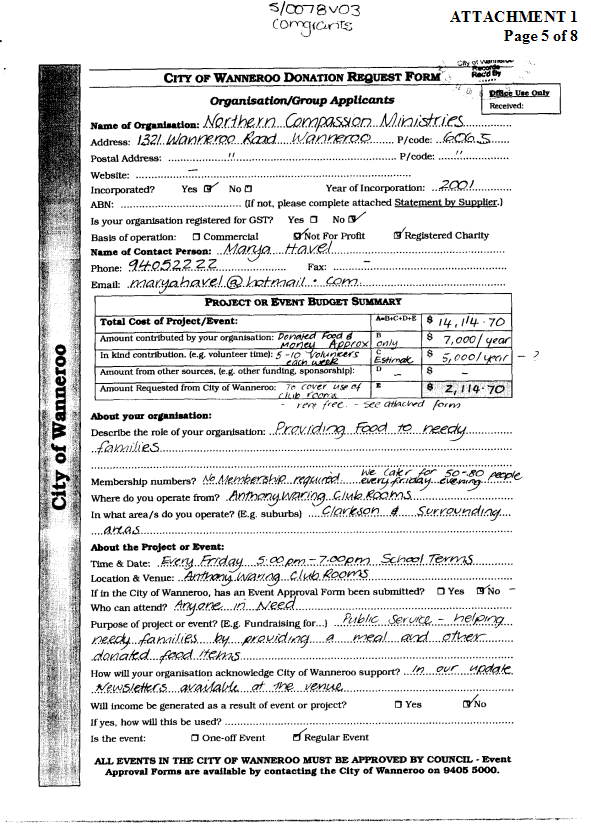 S/0078V03
Comgrants
ATTACHMENT 1
Page 5 of 8
City of Wanneroo
Records
Rec'd By
CITY OF WANNEROO DONATION REQUEST FORM
Office Use Only
Received:
Organisation/Group Applicants
Name of Organisation: Northern Compassion Ministries
Address: 1321 Wanneroo Road Wanneroo P/code: 6065
Postal Address: " P/code: "
Website: –
Incorporated? Yes ☑ No ☐ Year of Incorporation: 2001
ABN: (If not, please complete attached Statement by Supplier.)
Is your organisation registered for GST? Yes ☐ No ☑
Basis of operation: ☐ Commercial ☑ Not For Profit ☑ Registered Charity
Name of Contact Person: Marya Havel
Phone: 94052222 Fax: –
Email: maryahavel@hotmail.com
PROJECT OR EVENT BUDGET SUMMARY
Total Cost of Project/Event: A=B+C+D+E $ 14,114.70
Amount contributed by your organisation: Donated Food & Money Approx B only $ 7,000/year
In kind contribution, (e.g. volunteer time): 5-10 Volunteers each week C Estimate $ 5,000/year – ?
Amount from other sources, (e.g. other funding, sponsorship): D – $ –
Amount Requested from City of Wanneroo: To cover use of club rooms E $ 2,114.70
- rent free - see attached form
City of Wanneroo
About your organisation:
Describe the role of your organisation: Providing Food to needy
families
Membership numbers? No Membership required We cater for 50-80 people every friday evening
Where do you operate from? Anthony Waring Club Rooms
In what area/s do you operate? (E.g. suburbs) Clarkson & Surrounding
areas
About the Project or Event:
Time & Date: Every Friday 5:00pm - 7:00pm School Terms
Location & Venue: Anthony Waring Club Rooms
If in the City of Wanneroo, has an Event Approval Form been submitted? ☐ Yes ☑ No –
Who can attend? Anyone in Need
Purpose of project or event? (E.g. Fundraising for...) Public Service - helping
needy families by providing a meal and other
donated food items
How will your organisation acknowledge City of Wanneroo support? In our update
Newsletters available at the venue
Will income be generated as a result of event or project? ☐ Yes ☑ No
If yes, how will this be used?
Is the event: ☐ One-off Event ☑ Regular Event
ALL EVENTS IN THE CITY OF WANNEROO MUST BE APPROVED BY COUNCIL - Event
Approval Forms are available by contacting the City of Wanneroo on 9405 5000.